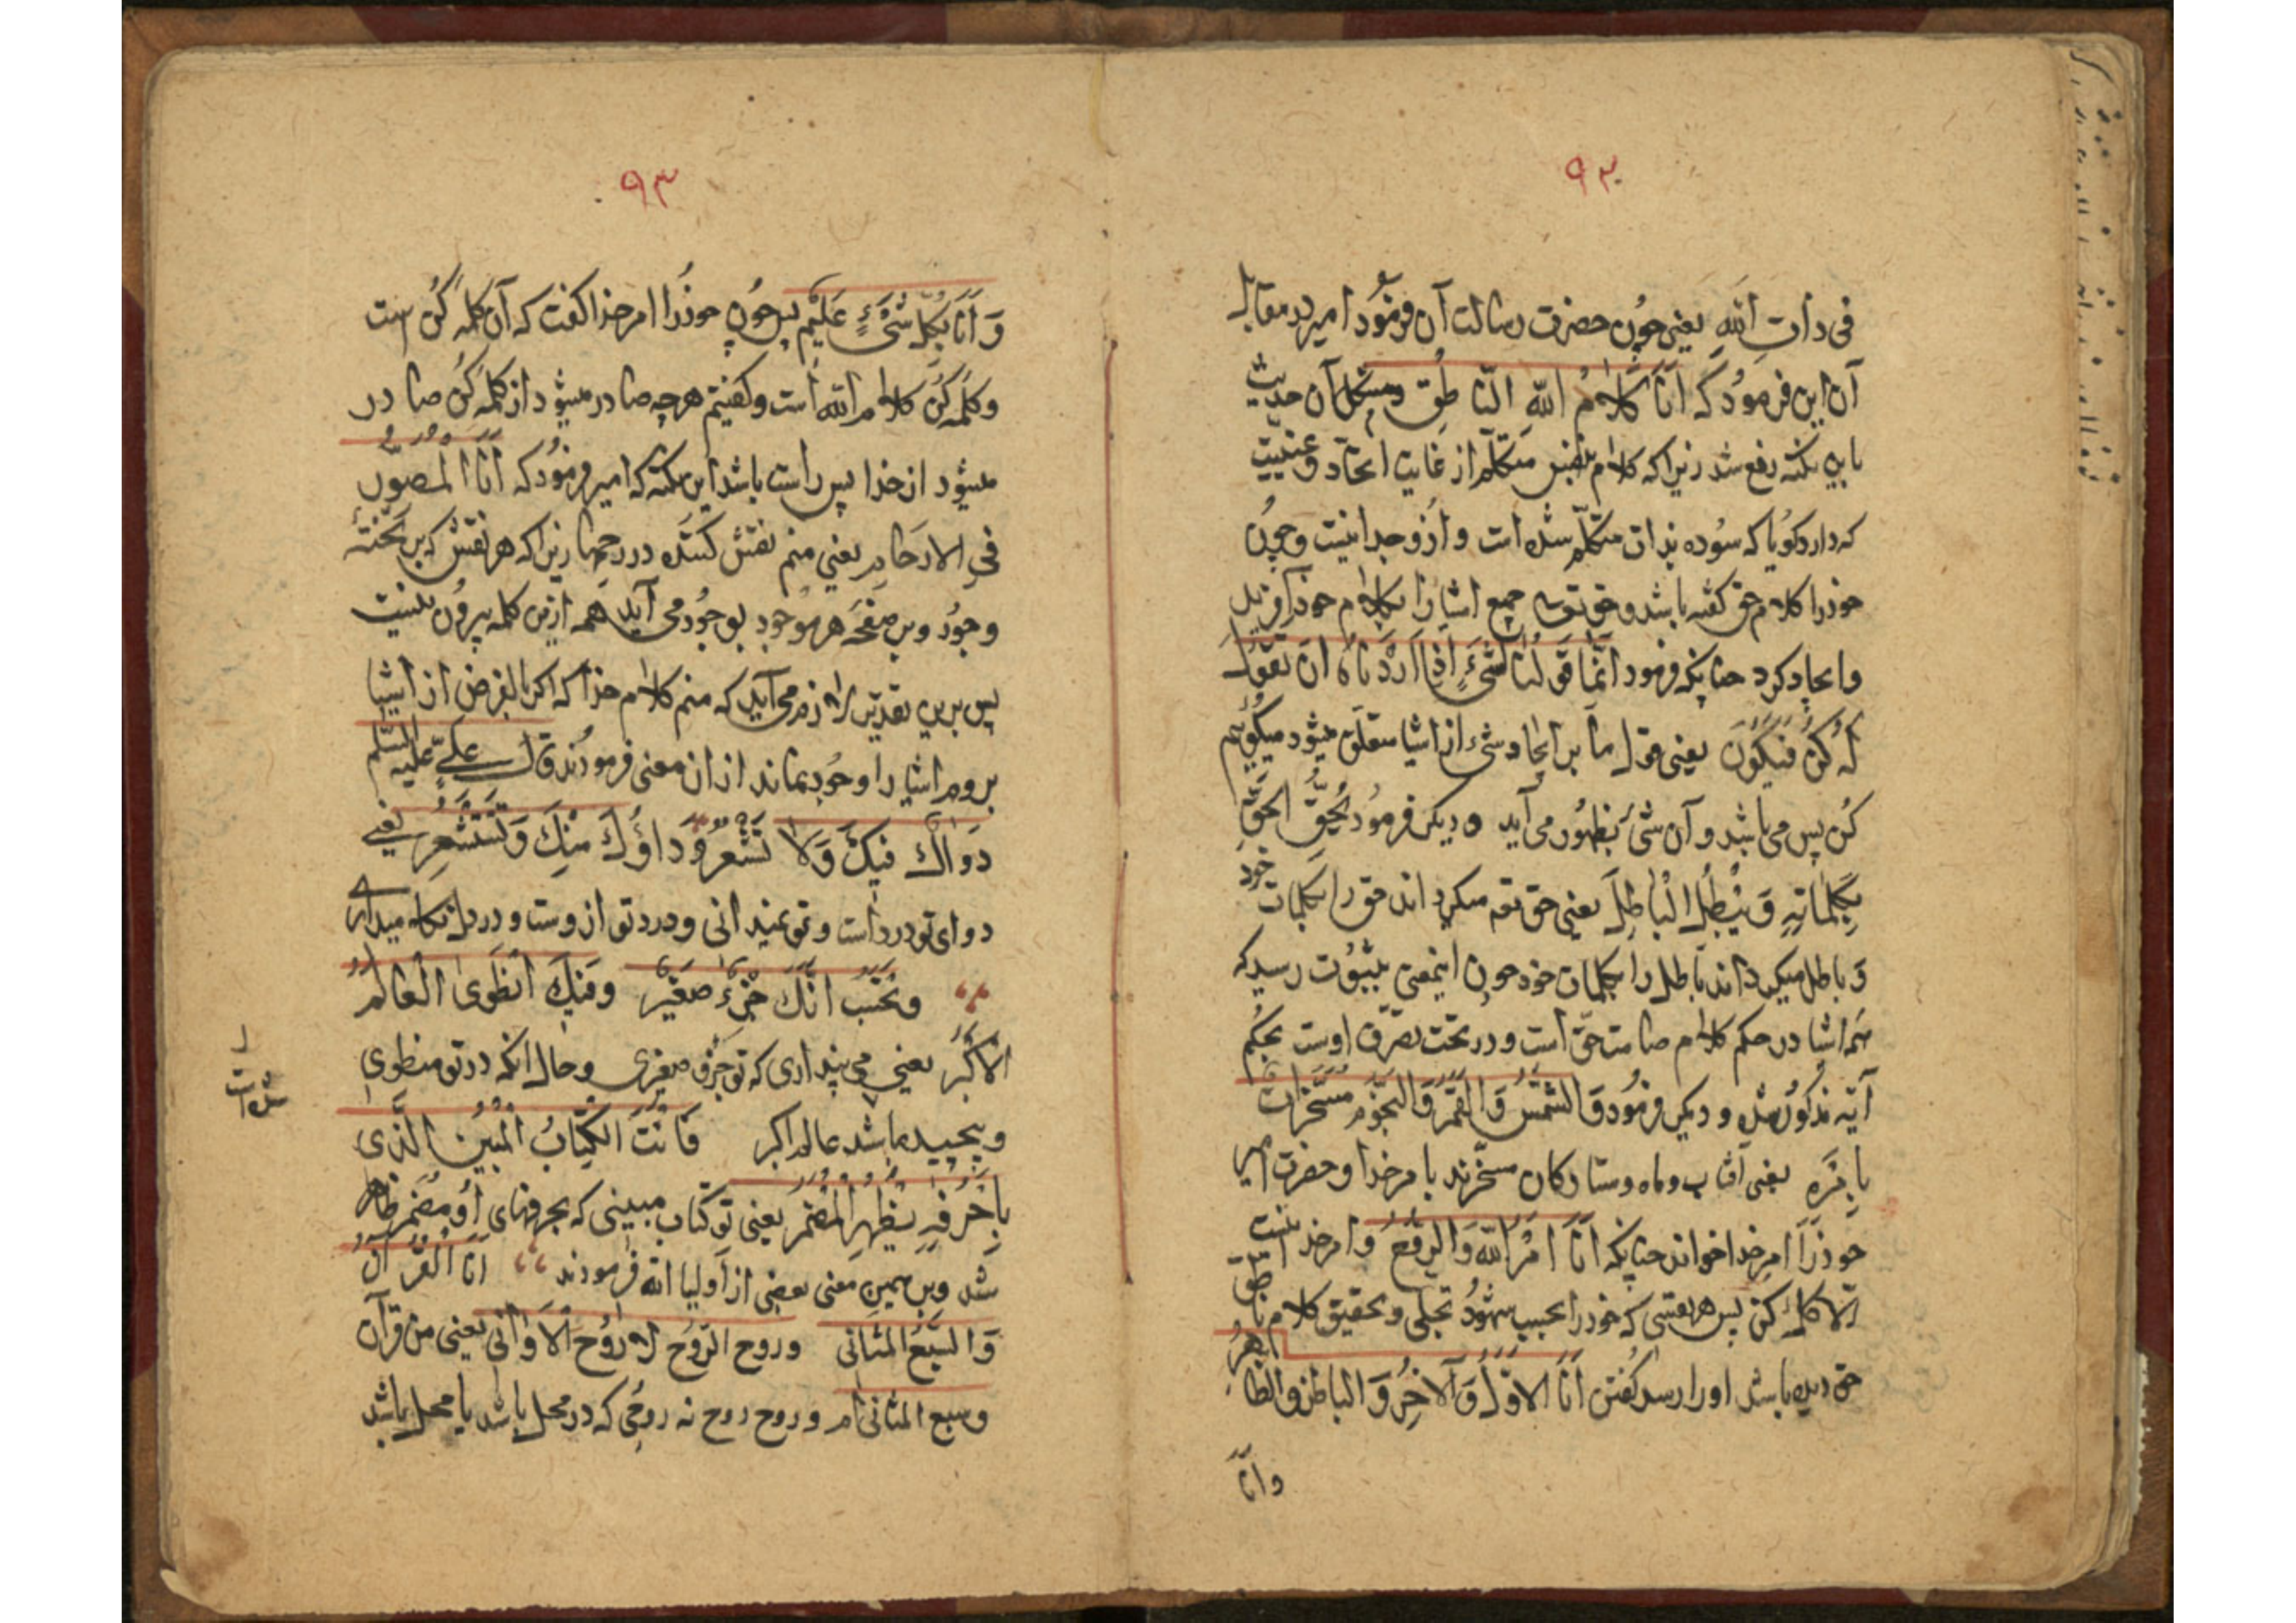 ٩٢
فی ذات الله یعنی چون حضرت رسالت آن فرمود امیر در مقابله
آن این فرمود که اَنَا کَلامُ اللهِ النّاطِق و مشکل آن حدیث
باین نکته رفع شد زیرا که کلام بنفس متکلم از غایت اتحاد و عینیت
که دارد گویا که سوده بذات متکلم شده است و ازو جدا نیست و چون
خود را کلام حق گفته باشد و حق تعه جمیع اشیا را بکلام خود آفرید
و ایجاد کرد چنانکه فرمود اِنَّمَا قَوْلُنَا لِشَیْءٍ اِذَا اَرَدْنَاهُ اَنْ نَقُولَ
لَهُ کُنْ فَیَکُونَ یعنی قول ما بر ایجاد شیء از اشیا متعلق میشود میگوئیم
کُن پس می باشد و آن شیٔ بظهور می آید و دیگر فرمود یُحِقُّ الحَقَّ
بِکَلِمَاتِهِ وَ یُبْطِلُ الْبَاطِلَ یعنی حق تعه میگرداند حق را بکلمات خود
و باطل میگرداند باطل را بکلمات خود چون اینمعنی بثبوت رسید که
همه اشیا در حکم کلام صامت حق است و در تحت تصرف اوست بحکم
آیه مذکور شده و دیگر فرمود وَ الشَّمْسَ وَ القَمَرَ وَ النُّجُومَ مُسَخَّرَات
بِاَمْرِه یعنی آفتاب و ماه و ستارگان مسخّرند بامر خدا و حضرت امیر
خود را امر خدا خواند چنانکه اَنَا اَمْرُ اللهِ وَ الرُّوح و امر خدا نیست
الّا کلمهٔ کن پس هر نفسی که خود را بحسب شهود تجلی و تحقیق کلام ناطق
حق دیده باشد او را رسد گفتن اَنَا الاَوَّلُ وَ الآخِرُ وَ الباطن و الظاهر
و انا
٩٣
وَ اَنَا بِکُلِّ شَیْءٍ عَلِیم پس چون خود را امر خدا گفت که آن کلمه کُن است
و کلمه کُن کلام الله است و گفتیم هرچه صادر میشود از کلمه کُن صادر
میشود از خدا پس راست باشد این نکته که امیر فرمود که اَنَا المُصَوِّر
فِی الارحَام یعنی منم نقش کننده در رحمها زیرا که هر نقش که بر تختهٔ
وجود و بر صفحهٔ هر موجود بوجود می آید همه ازین کلمه بیرون نیست
پس برین تقدیر لازم می آید که منم کلام خدا که اگر بالفرض از اشیا
بروم اشیا را وجود نماند از ان معنی فرمودند قال علی علیه السلم
دَوَاؤُکَ فِیکَ وَ لا تَشْعُرُ وَ دَاؤُکَ مِنْکَ وَ تَسْتَشْعِر یعنی
دوای تو در ذات و تو نمیدانی و درد تو از وست و در دل نگاه میداری
وتَحْسَبُ اَنَّکَ جُزْءٌ صَغِیر وَ فِیکَ انْطَوی العَالَمُ
الاَکْبَر یعنی می پنداری که تو جزو صغیری و حال آنکه در تو منطوی
شده است
و پیچیده باشد عالم اکبر فَاَنْتَ الکِتَابُ المُبِینُ الَّذی
بِاَحْرُفِهِ یَظْهَرُ المُضْمَر یعنی تو کتاب مبینی که بحرفهای او مضمر ظاهر
شد و بر همین معنی بعضی از اولیا الله فرمودند اَنَا القُرآنُ
وَ السَّبْعُ المَثانی و روح الرّوح لا روح الاَوانی یعنی من قرآن
و سبع المثانی ام و روح روح نه روحی که در محل باشد یا محل باشد